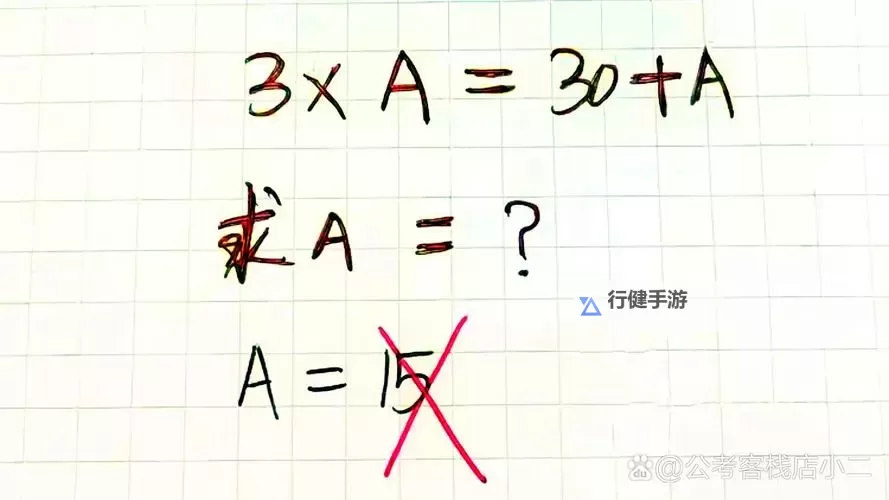 3×A=30+A
求A=?
行健手游
A=15
@公考客栈店小二